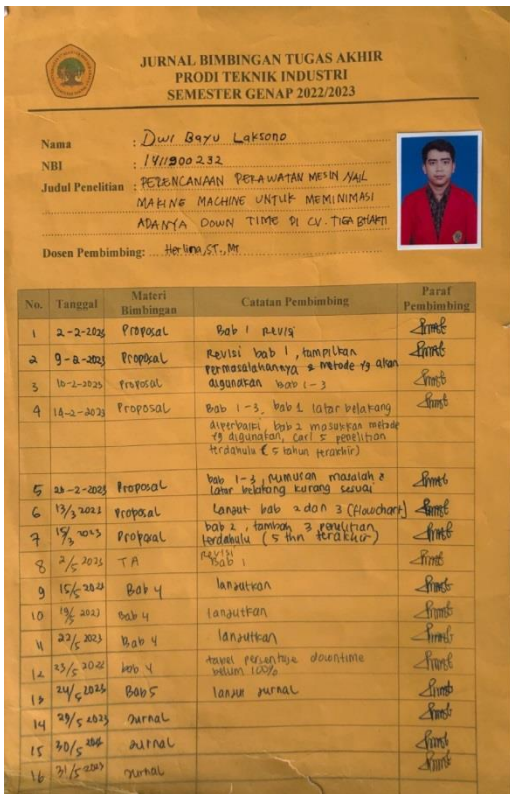 JURNAL BIMBINGAN TUGAS AKHIR
PRODI TEKNIK INDUSTRI
SEMESTER GENAP 2022/2023
Nama : Dwi Bayu Laksono
NBI : 1411900232
Judul Penelitian : PERENCANAAN PERAWATAN MESIN NAIL
MAKING MACHINE UNTUK MEMINIMASI
ADANYA DOWN TIME DI CV. TIGA BHAKTI
Dosen Pembimbing: Herlina, ST., MT
No. Tanggal Materi Bimbingan Catatan Pembimbing Paraf Pembimbing
1 2-2-2023 Proposal Bab 1 Revisi
2 9-2-2023 Proposal Revisi bab 1, tampilkan
permasalahannya & metode yg akan
3 10-2-2023 Proposal digunakan bab 1-3
4 14-2-2023 Proposal Bab 1-3, bab 1 latar belakang
diperbaiki, bab 2 masukkan metode
yg digunakan, cari 5 penelitian
terdahulu (5 tahun terakhir)
5 28-2-2023 Proposal bab 1-3, rumusan masalah &
latar belakang kurang sesuai
6 13/3 2023 Proposal Lanjut bab 2 dan 3 (flowchart)
7 15/3 2023 Proposal bab 2, tambah 3 penelitian
terdahulu (5 thn terakhir)
8 2/5 2023 TA Revisi
Bab 1
9 15/5 2023 Bab 4 lanjutkan
10 19/5 2023 Bab 4 lanjutkan
11 22/5 2023 Bab 4 lanjutkan
12 23/5 2023 bab 4 tabel persentase downtime
belum 100%
13 24/5 2023 Bab 5 lanjut jurnal
14 29/5 2023 Jurnal
15 30/5 2023 Jurnal
16 31/5 2023 Jurnal